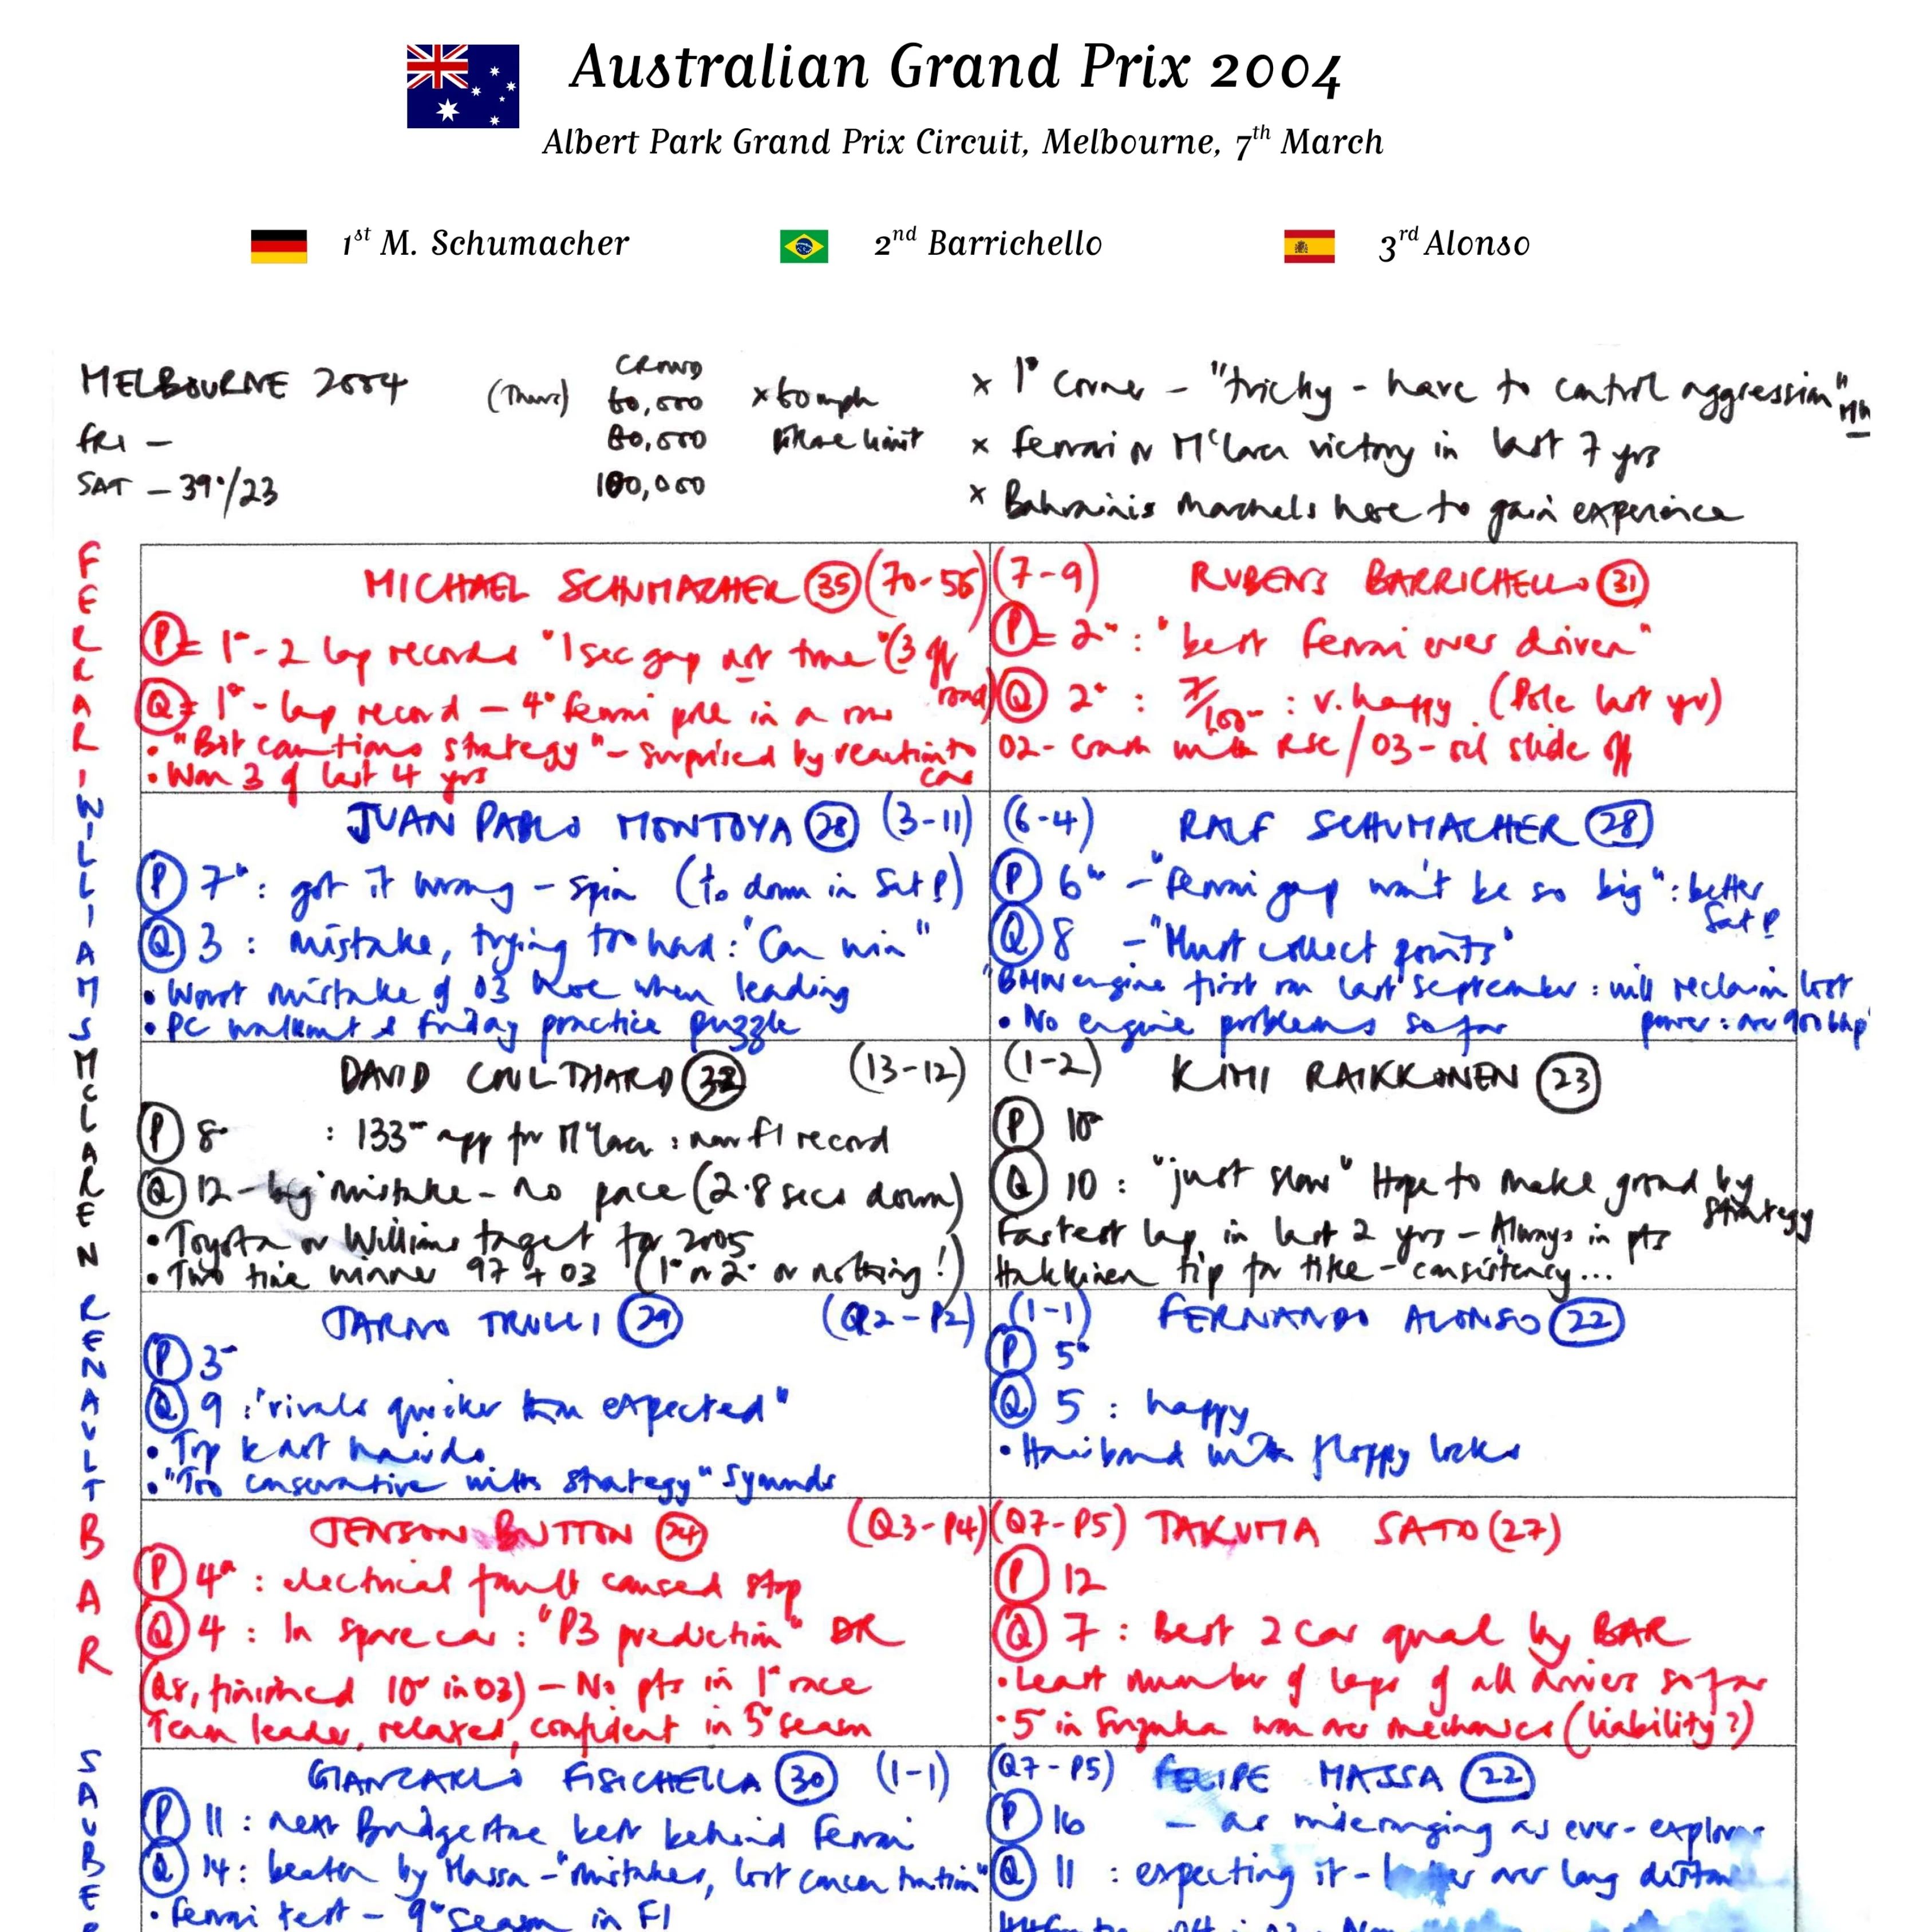 Australian Grand Prix 2004
Albert Park Grand Prix Circuit, Melbourne, 7th March
1st M. Schumacher
2nd Barrichello
3rd Alonso
MELBOURNE 2004 (Thurs) CROWD 60,000 x 60mph
FRI — 80,000 limit
SAT — 39°/23 100,000
x 1° Corner — "tricky - have to control aggression" MH
x Ferrari or McLaren victory in last 7 yrs
x Bahrainis marshals here to gain experience
FERRARI
MICHAEL SCHUMACHER 35 (70-56)
P = 1° - 2 lap records "1 sec gap not true" (3 off road)
Q = 1° - lap record — 4° Ferrari pole in a row
• "Bit cautious strategy" - surprised by reaction to car
• Won 3 of last 4 yrs
(7-9) RUBENS BARRICHELLO 31
P = 2° : "best Ferrari ever driven"
Q 2° : : v. happy. (Pole last yr)
02 - Crash with RSC / 03 - slide off
WILLIAMS
JUAN PABLO MONTOYA 28 (3-11)
P 7° : got it wrong - spin (10 down in Sat P)
Q 3 : mistake, trying too hard : "Can win"
• Worst mistake of 03 here when leading
• PC walkout & Friday practice puzzle
(6-4) RALF SCHUMACHER 28
P 6° - "Ferrari gap won't be so big" : better Sat P
Q 8 - "Must collect points"
"BMW engine first run last September : will reclaim lost power : over 900 bhp"
• No engine problems so far
McLAREN
DAVID COULTHARD 32 (13-12)
P 8° : 133° app for McLaren : new F1 record
Q 12 - big mistake - no pace (2.8 secs down)
• Toyota or Williams target for 2005
• Two time winner 97 + 03 (1° or 2° or nothing!)
(1-2) KIMI RAIKKONEN 23
P 10°
Q 10 : "just slow" Hope to make ground by strategy
Fastest lap in last 2 yrs - Always in pts
Hakkinen tip for title - consistency...
RENAULT
JARNO TRULLI 29 (Q2-P2)
P 3°
Q 9 : "rivals quicker than expected"
• Top kart
• "Too conservative with strategy" Symonds
(1-1) FERNANDO ALONSO 22
P 5°
Q 5 : happy
• Hairband with floppy locks
BAR
JENSON BUTTON 24 (Q3-P4)
P 4° : electrical fault caused stop
Q 4 : In spare car : "P3 prediction" DR
(Q8, finished 10° in 03) - No pts in 1° race
Team leader, relaxed, confident in 5° season
(Q7-P5) TAKUMA SATO (27)
P 12
Q 7 : Best 2 car qual by BAR
• Least number of laps of all drivers so far
• 5° in Suzuka won over mechanics (liability?)
SAUBER
GIANCARLO FISICHELLA 30 (1-1)
P 11 : next Bridgestone best behind Ferrari
Q 14 : beaten by Massa - "mistakes, lost concentration"
• Ferrari test - 9° season in F1
(Q7-P5) FELIPE MASSA 22
P 16 - as wideranging as ever - explores
Q 11 : expecting it - better over long distance